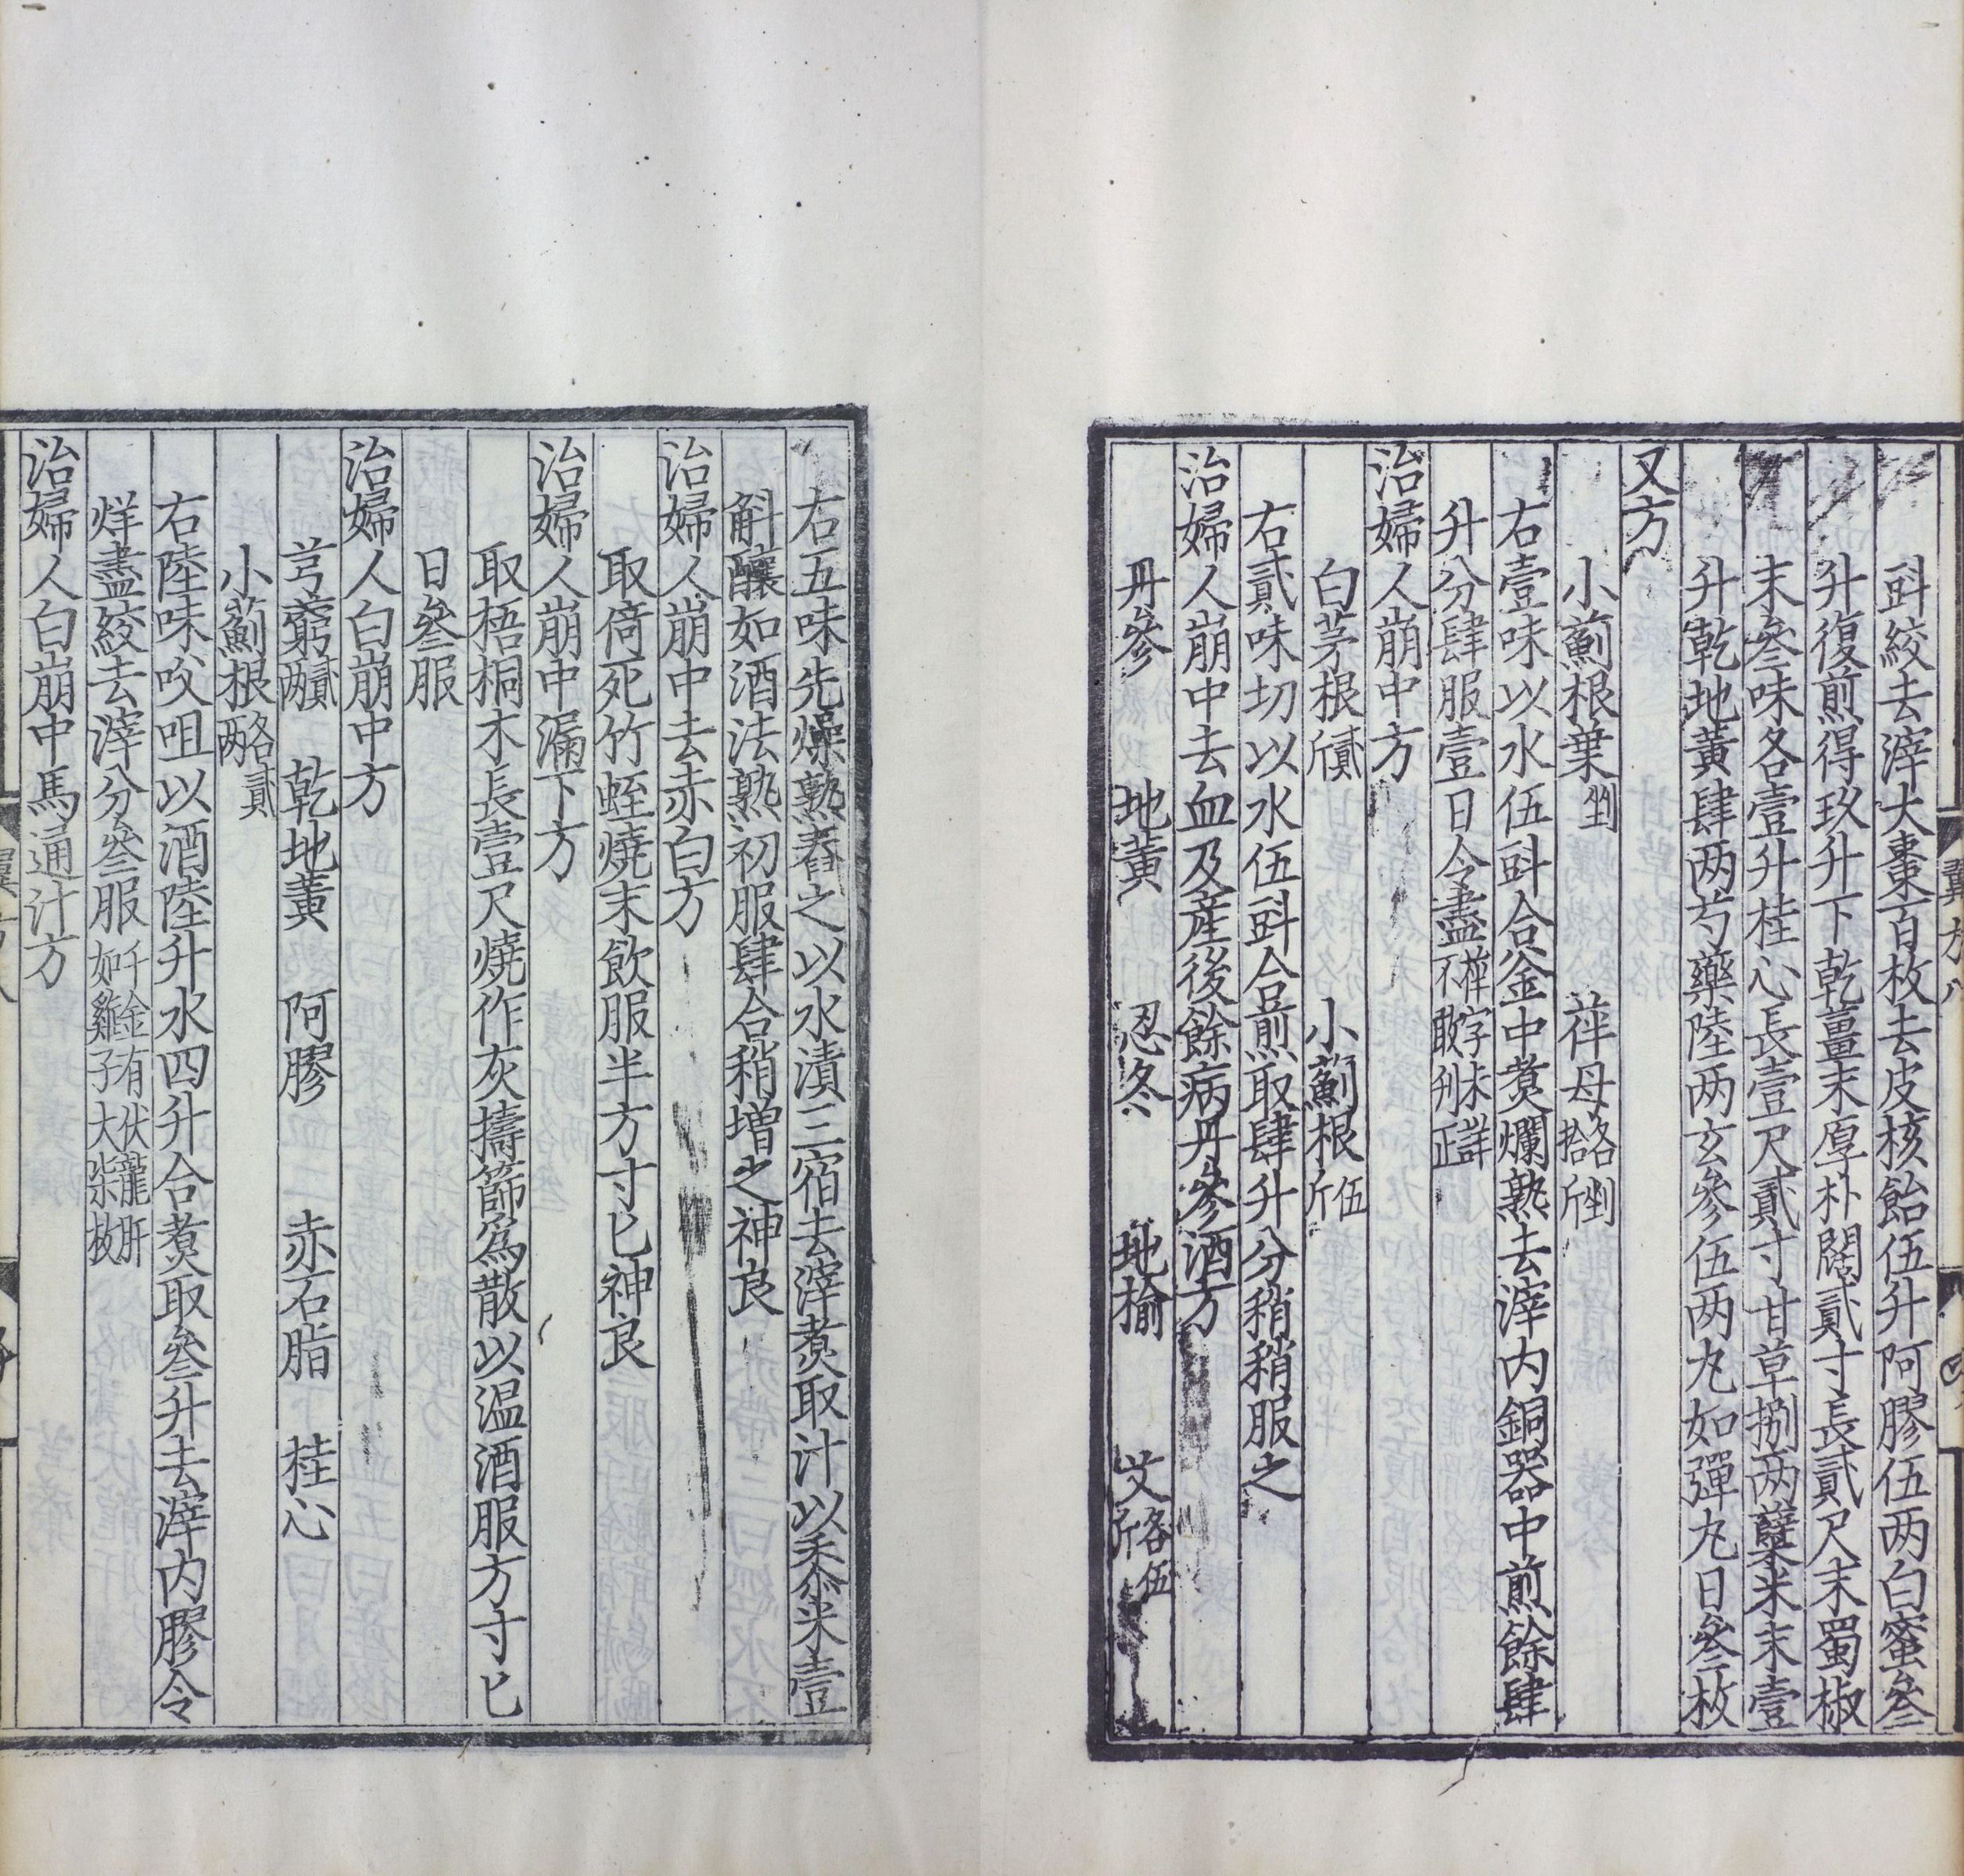 㪷絞去滓大棗百枚去皮核飴伍升阿膠伍两白蜜叄
升復煎得玖升下乾薑末厚朴闊貳寸長貳尺末蜀椒
末叄味各壹升桂心長壹尺貳寸甘草捌两糵米末壹
升乾地黃肆两芍藥陸两玄參伍两丸如彈丸日叄枚
又方
小薊根葉剉 母各拾斤剉
右壹味以水伍㪷合釜中煑爛熟去滓内銅器中煎餘肆
升分肆服壹日令盡字未詳不敢刋正
治婦人崩中方
白茅根貳斤 小薊根伍斤
右貳味切以水伍㪷合煎取肆升分稍稍服之
治婦人崩中去血及産後餘病丹參酒方
丹參 地黃 忍冬 地榆 艾各伍斤
翼方八
右五味先燥熟舂之以水漬三宿去滓煑取汁以黍米壹
斛釀如酒法熟初服肆合稍增之神良
治婦人崩中去赤白方
取倚死竹蛭燒末飲服半方寸匕神良
治婦人崩中漏下方
取梧桐木長壹尺燒作灰擣篩爲散以温酒服方寸匕
日叄服
治婦人白崩中方
芎藭貳两 乾地黃 阿膠 赤石脂 桂心
小薊根各貳两
右陸味㕮咀以酒陸升水四升合煑取叄升去滓内膠令
烊盡絞去滓分叄服千金有伏龍肝如雞子大柒枚
治婦人白崩中馬通汁方